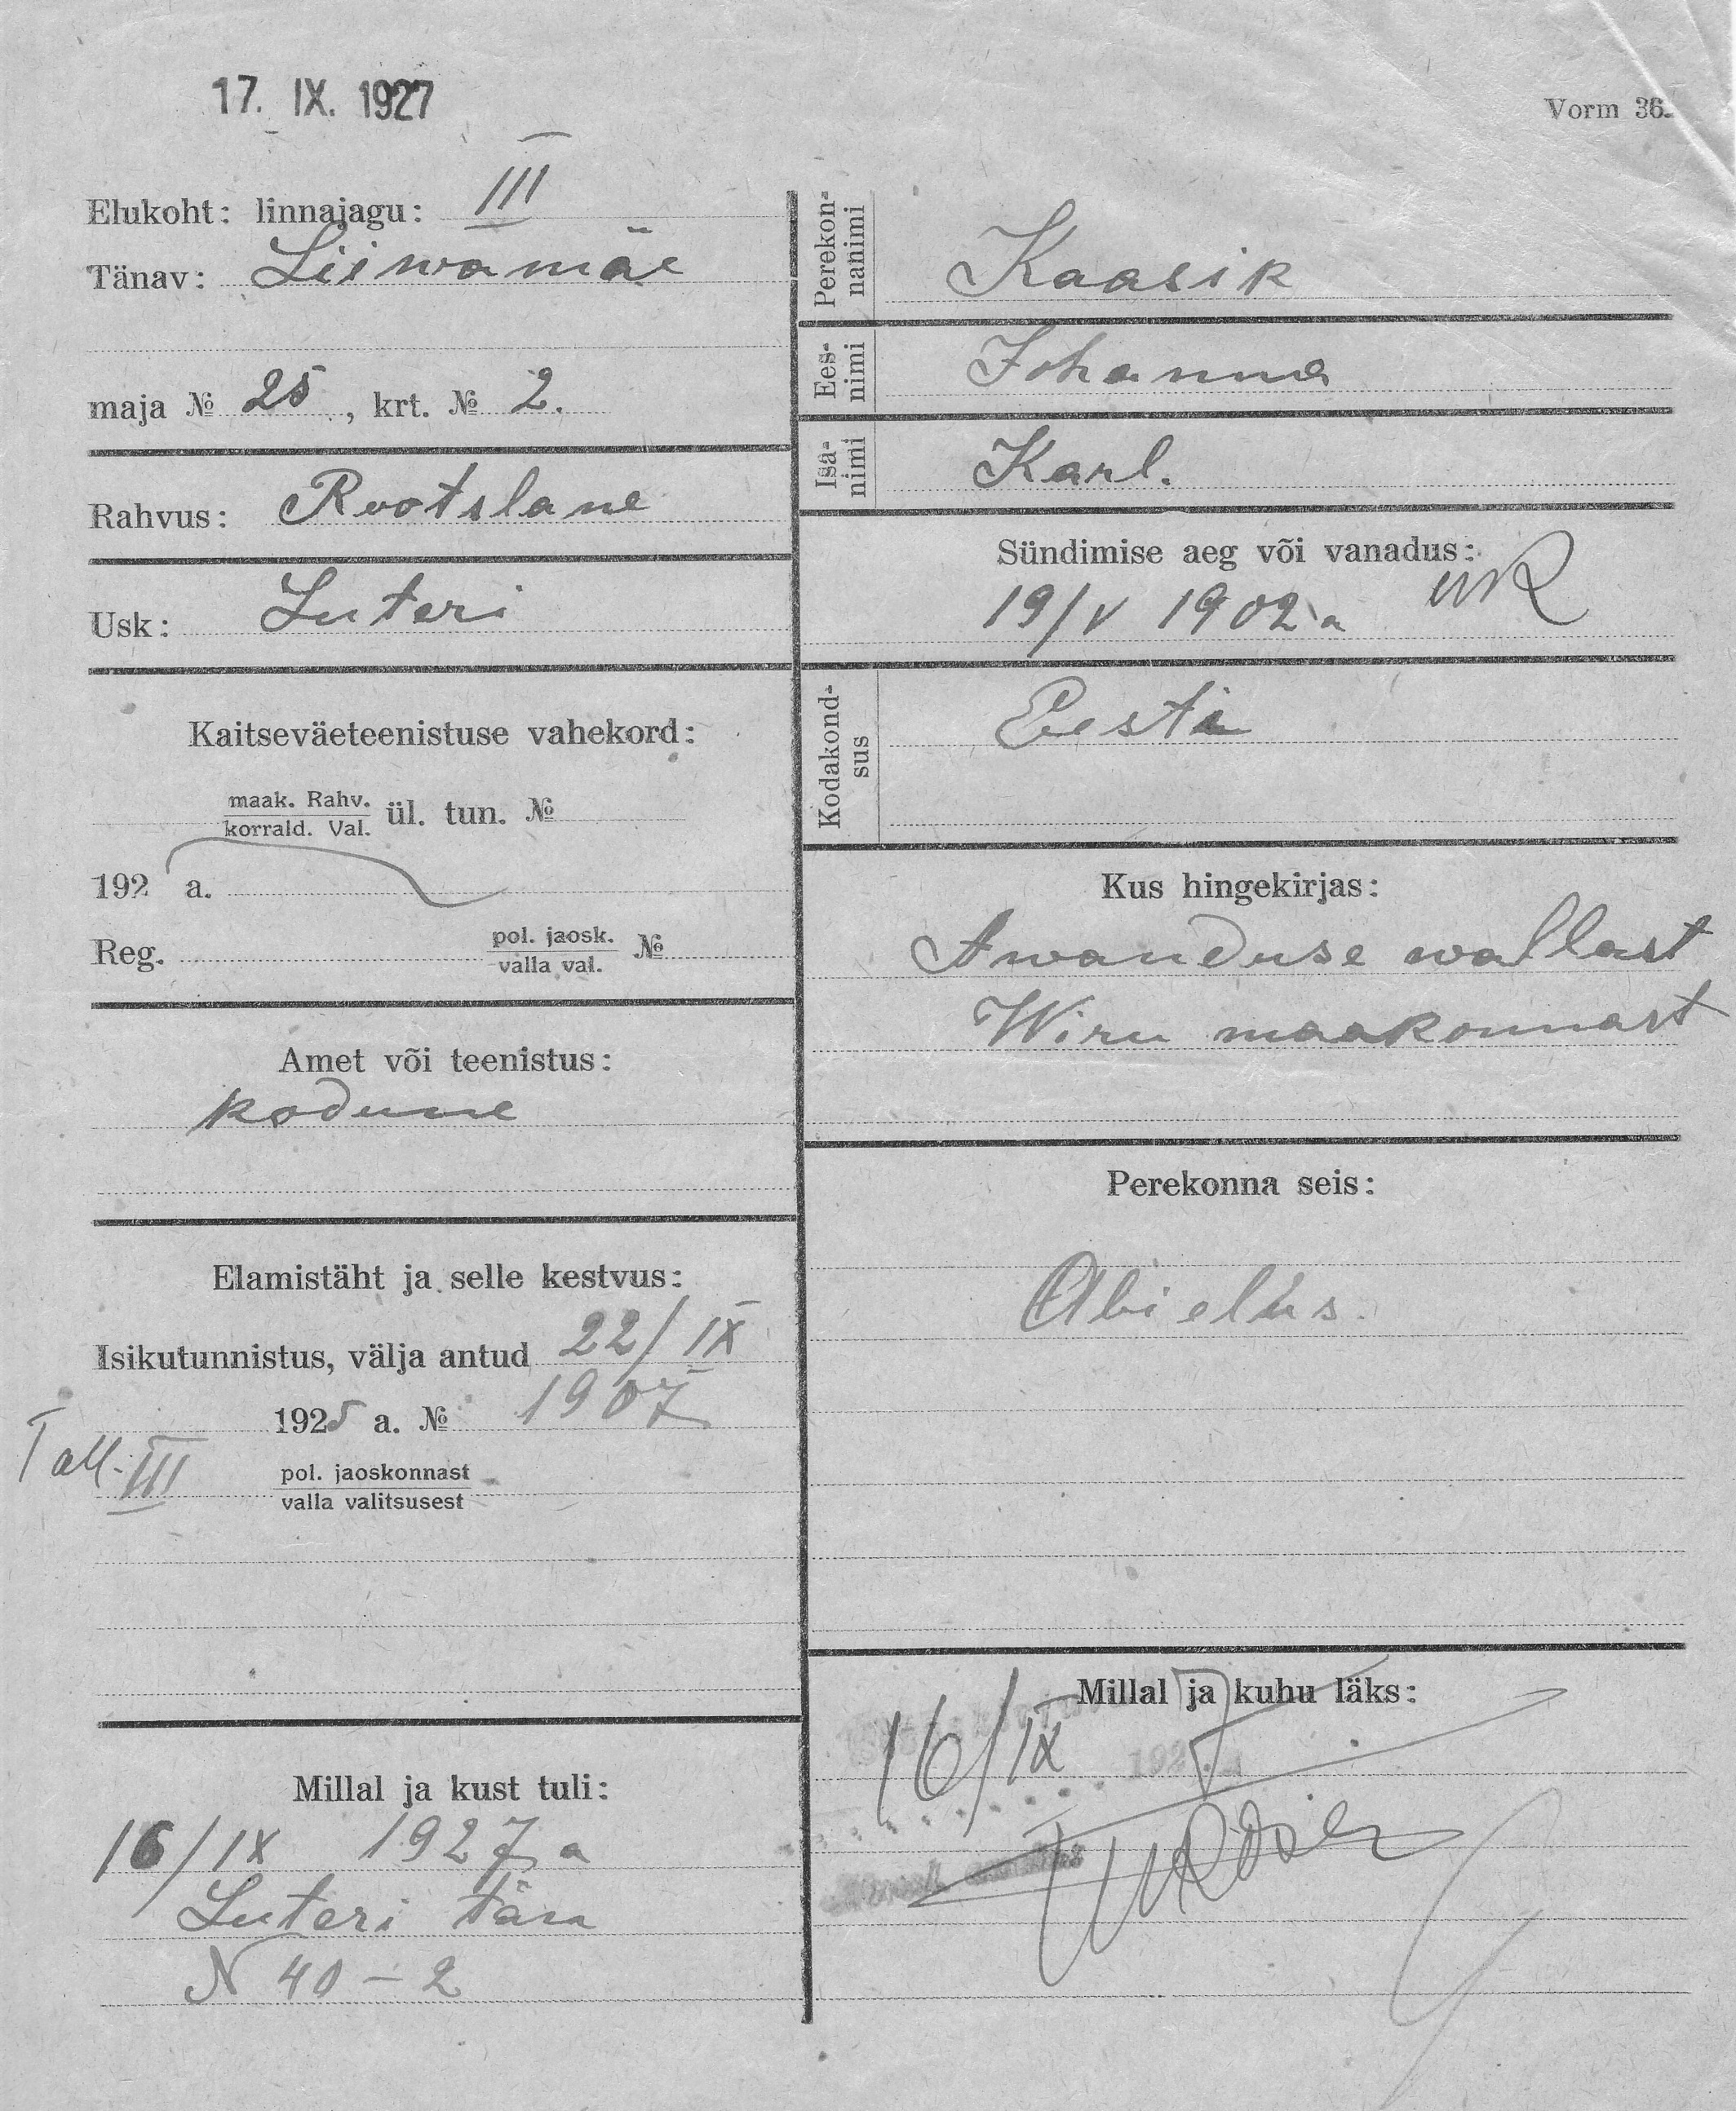 17. IX. 1927
Vorm 36.
Elukoht: linnajagu: III
Tänav: Liiwamäe
maja № 25, krt. № 2.
Rahvus: Rootslane
Usk: Luteri
Kaitseväeteenistuse vahekord:
maak. Rahv.
korrald. Val. ül. tun. №
192 a.
Reg. pol. jaosk. №
valla val.
Amet või teenistus:
kodune
Elamistäht ja selle kestvus:
Isikutunnistus, välja antud 22/IX
1925 a. № 1907
Tall. III pol. jaoskonnast
valla valitsusest
Millal ja kust tuli:
16/IX 1927 a
Luteri tän
N 40-2
Perekon-
nanimi Kaasik
Ees-
nimi Johanna
Isa-
nimi Karl.
Sündimise aeg või vanadus:
19/V 1902 a
Kodakond-
sus Eesti
Kus hingekirjas:
Awanduse wallast
Wiru maakonnast
Perekonna seis:
Abielus.
Millal ja kuhu läks:
16/IX 192